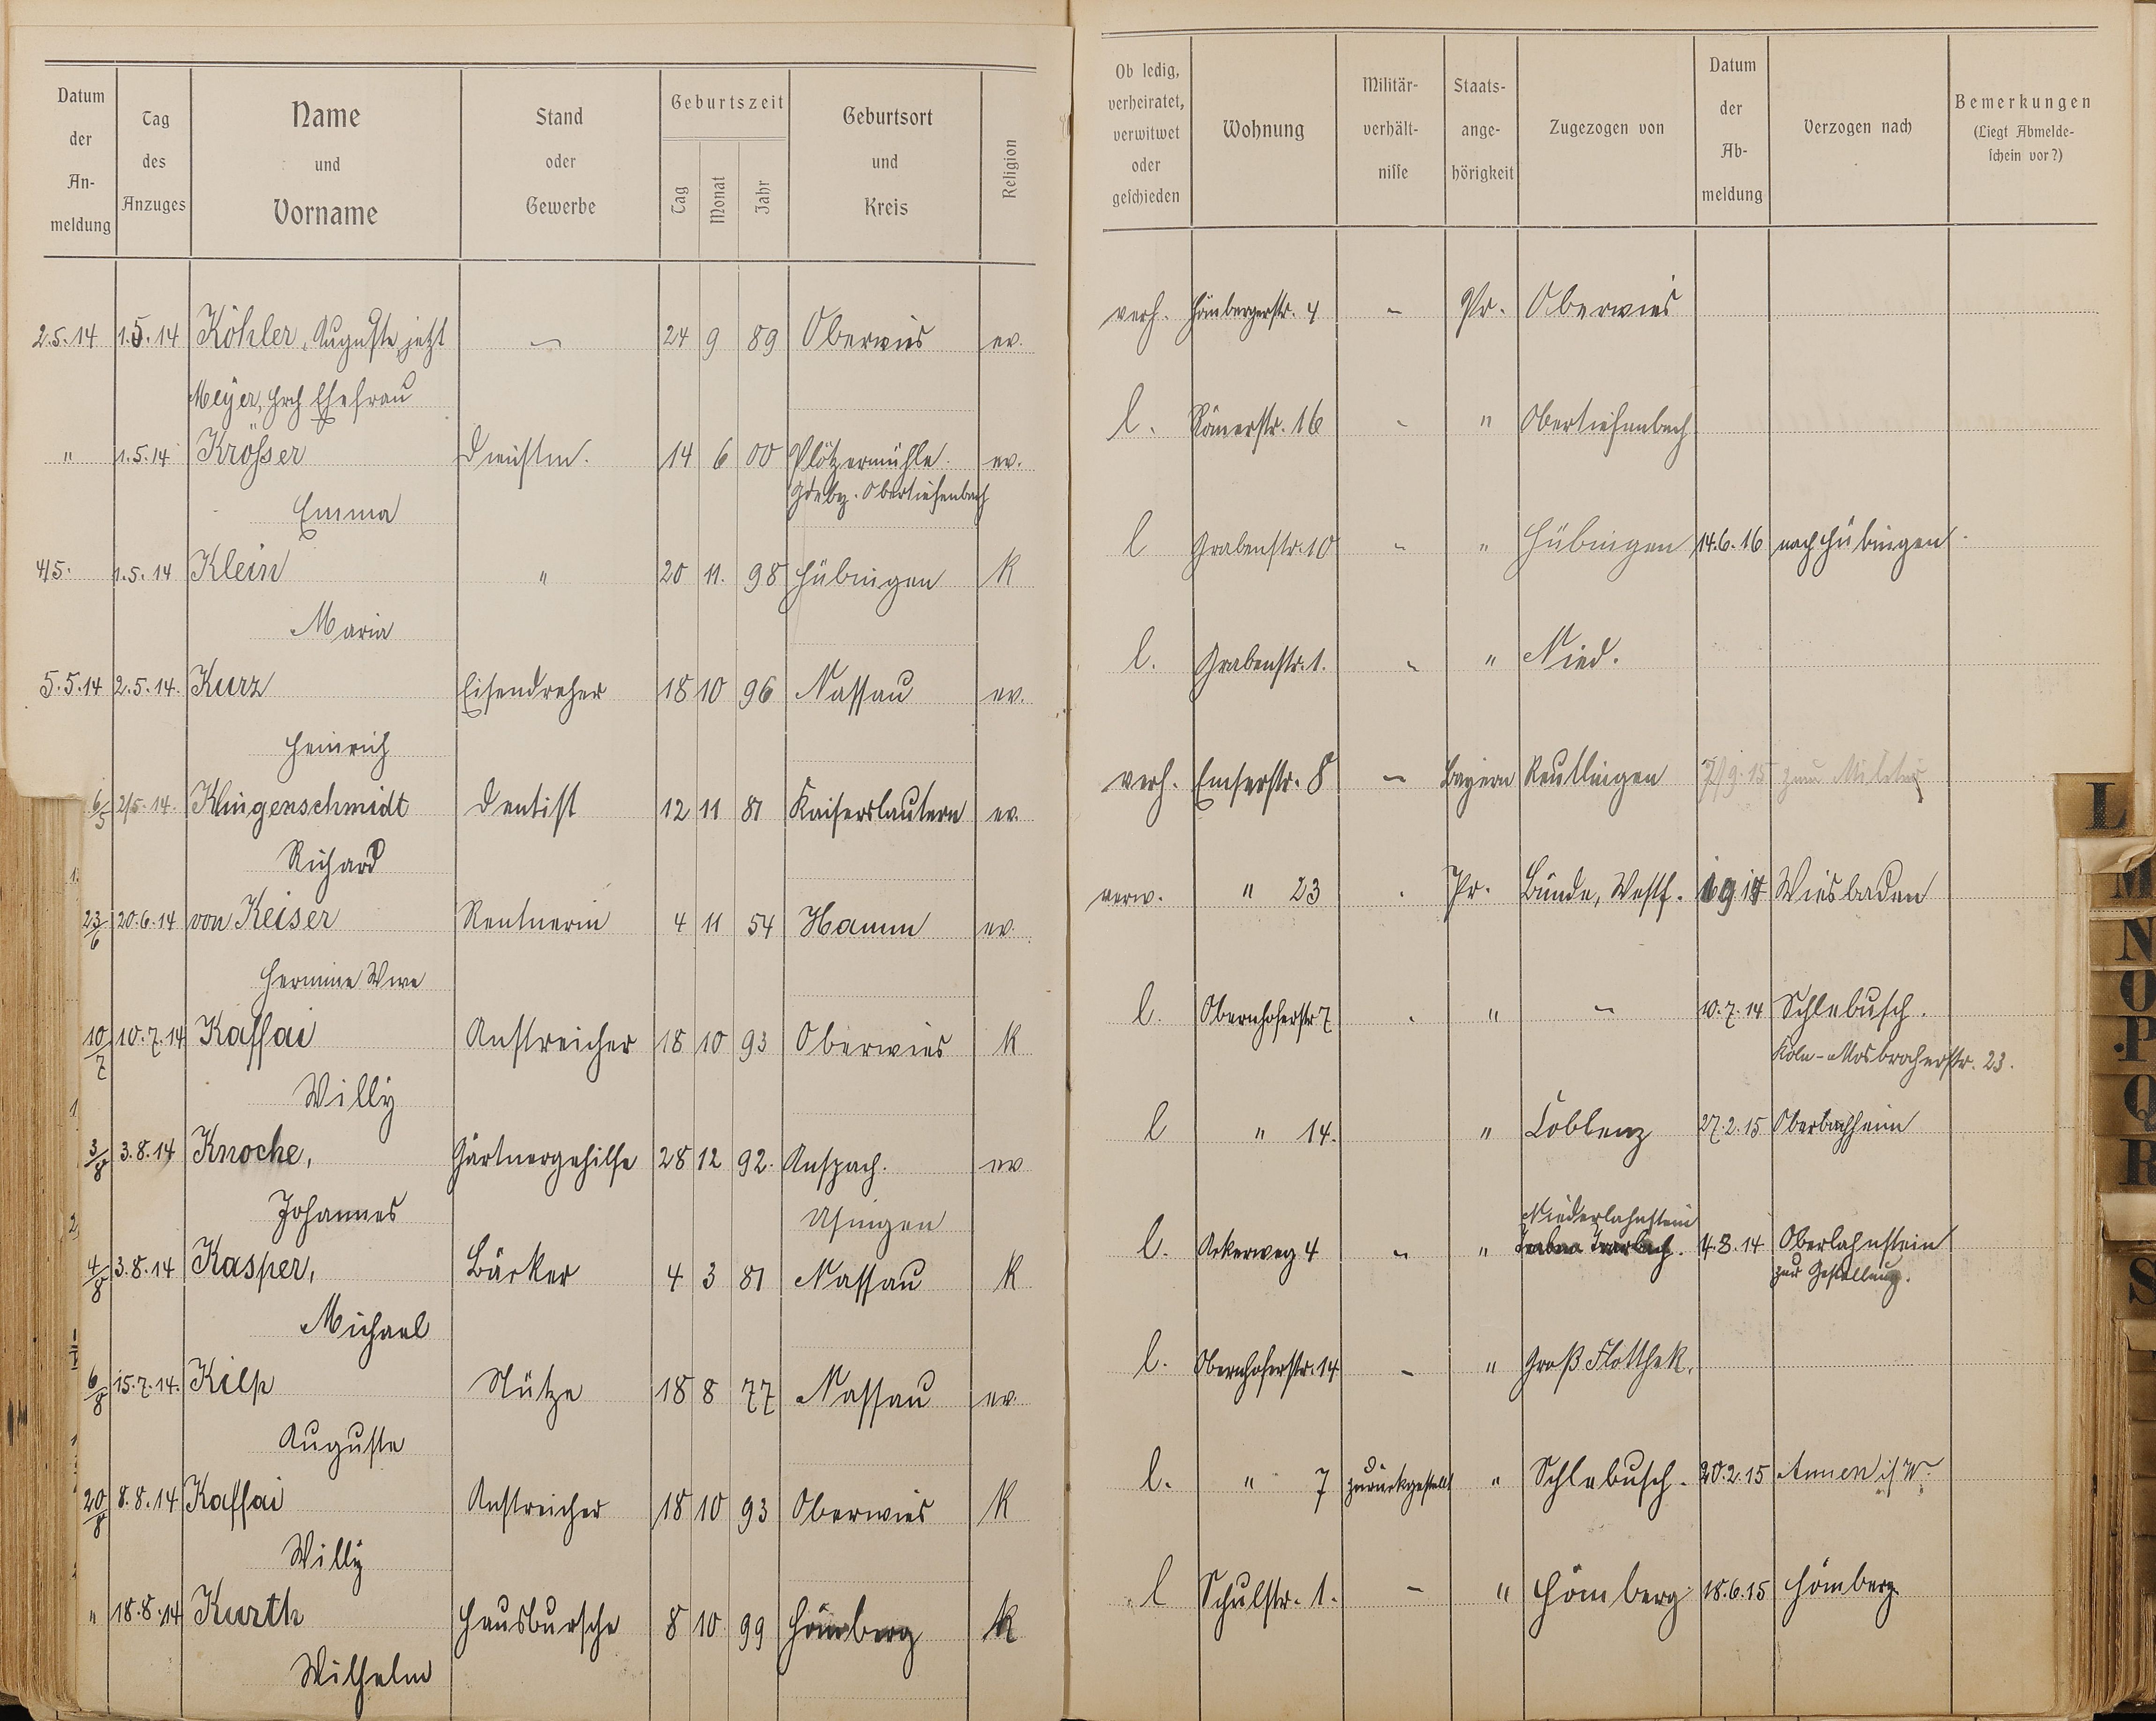 Datum der An- meldung | Tag des Anzuges | Name und Vorname | Stand oder Gewerbe | Geburtszeit Tag Monat Jahr | Geburtsort und Kreis | Religion | Ob ledig, verheiratet, verwitwet oder geschieden | Wohnung | Militär- verhält- nisse | Staats- ange- hörigkeit | Zugezogen von | Datum der Ab- meldung | Verzogen nach | Bemerkungen (Liegt Abmelde- schein vor?)
2.5.14 | 1.5.14 | Köhler, Auguste, jetzt | - | 24 | 9 | 89 | Oberwies | ev. | verh. | Hömbergerstr. 4 | - | Pr. | Oberwies
Meyer, Hrch Ehefrau
" | 1.5.14 | Krösser | Dienstm. | 14 | 6 | 00 | Plötzermühle | ev. | l. | Römerstr. 16 | - | " | Obertiefenbach
Gdebz. Obertiefenbach
Emma
4/5. | 1.5.14 | Klein | " | 20 | 11. | 98 | Hübingen | K | l | Grabenstr. 10 | - | " | Hübingen | 14.6.16 | nach Hübingen
Maria
5.5.14 | 2.5.14. | Kurz | Eisendreher | 18 | 10 | 96 | Nassau | ev. | l. | Grabenstr. 1. | - | " | Nied.
Heinrich
6/5 | 2/5.14. | Klingenschmidt | Dentist | 12 | 11 | 81 | Kaiserslautern | ev. | verh. | Emserstr. 8 | - | Bayern | Reutlingen | 7/9.15 | zum Militär
Richard
23/6 | 20.6.14 | von Keiser | Rentnerin | 4 | 11 | 54 | Hamm | ev. | verw. | " 23 | - | Pr. | Bünde, Westf. | Wiesbaden
Hermine Wwe
10/7 | 10.7.14 | Kaffai | Anstreicher | 18 | 10 | 93 | Oberwies | K | l. | Obernhoferstr 7 | - | " | - | 10.7.14 | Schlebusch.
Köln-Mosbracherstr. 23.
Willy
3/8 | 3.8.14 | Knoche, | Gärtnergehilfe | 28 | 12 | 92. | Anspach. | ev | l | " 14. | " | Coblenz | 27.2.15 | Oberbachheim
Johannes | Usingen
4/8 | 3.8.14 | Kasper, | Bäcker | 4 | 3 | 81 | Nassau | K | l. | Ackerweg 4 | - | " | Niederlahnstein | 4.8.14 | Oberlahnstein
zur Gestellung.
Michael
6/8 | 15.7.14. | Kilp | Stütze | 18 | 8 | 77 | Nassau | ev. | l. | Obernhoferstr. 14 | - | " | Groß Flotthek.
Auguste
20/8 | 8.8.14 | Kaffai | Anstreicher | 18 | 10 | 93 | Oberwies | K | l. | " 7 | zurückgestellt | " | Schlebusch. | 20.2.15 | Annen i/W.
Willy
" | 18.8.14 | Kurth | Hausbursche | 8 | 10 | 99 | Hömberg | K | l | Schulstr. 1. | - | " | Hömberg | 18.6.15 | Hömberg.
Wilhelm
L
M
N
O
P
Q
R
S